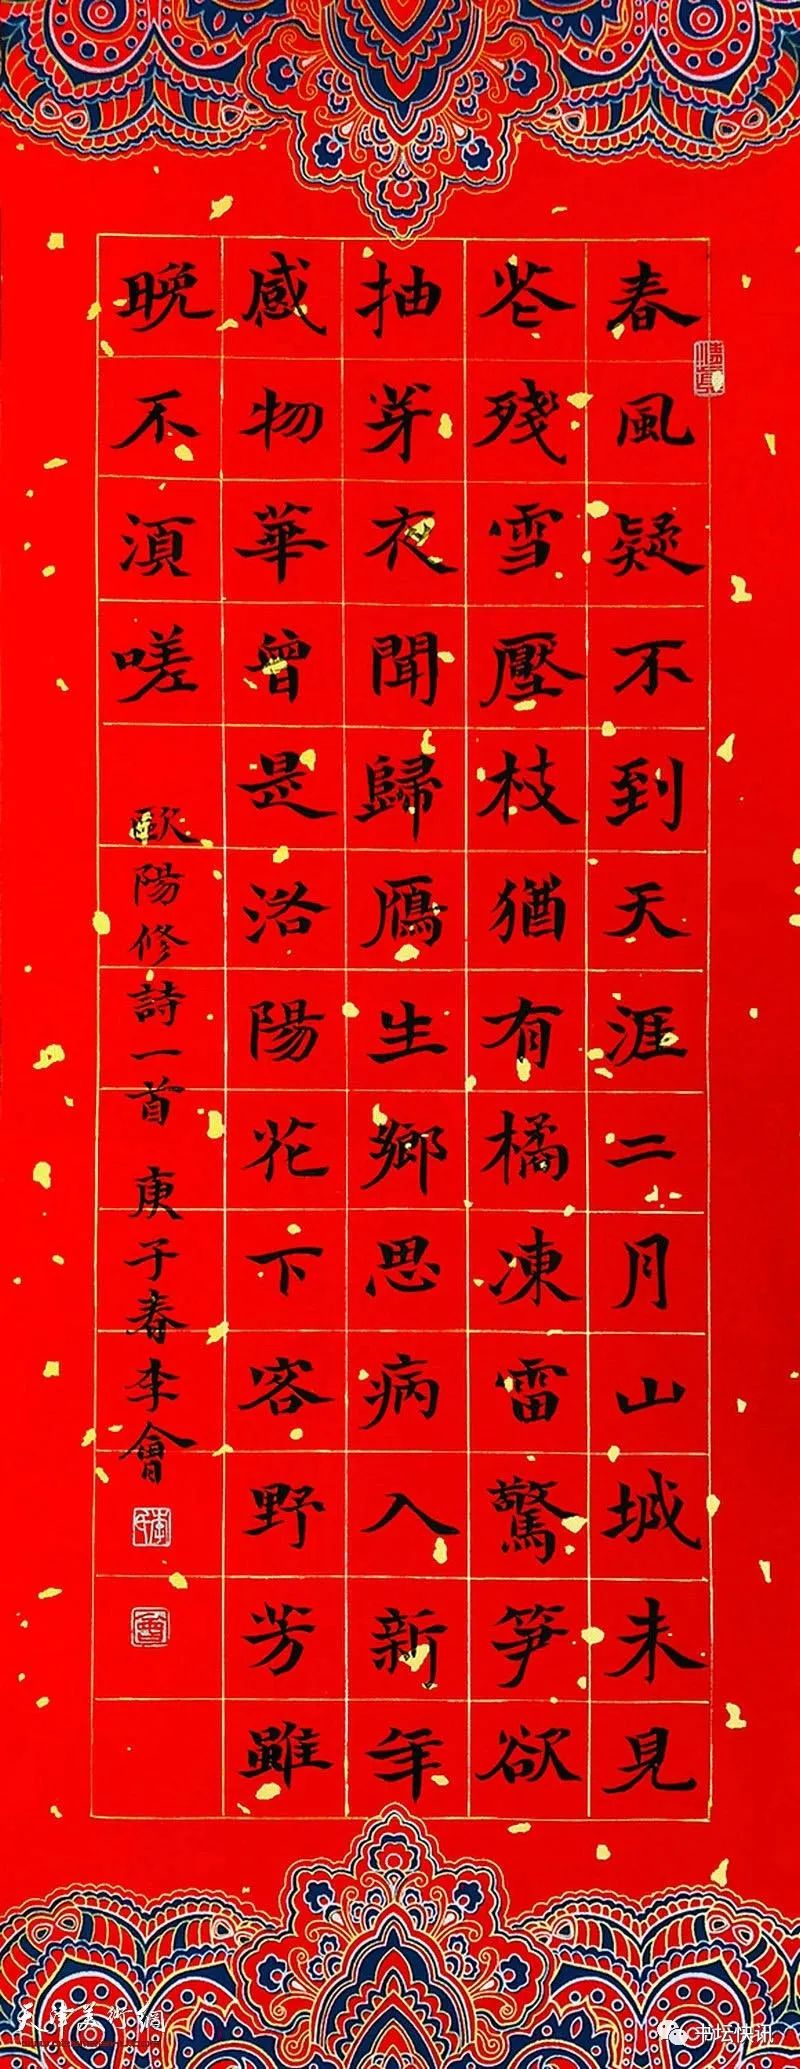 春風疑不到天涯二月山城未見
花殘雪壓枝猶有橘凍雷驚笋欲
抽芽夜聞歸鴈生鄉思病入新年
感物華曾是洛陽花下客野芳雖
晚不須嗟
歐陽修詩一首 庚子春李會
天津美術網
书坛快讯